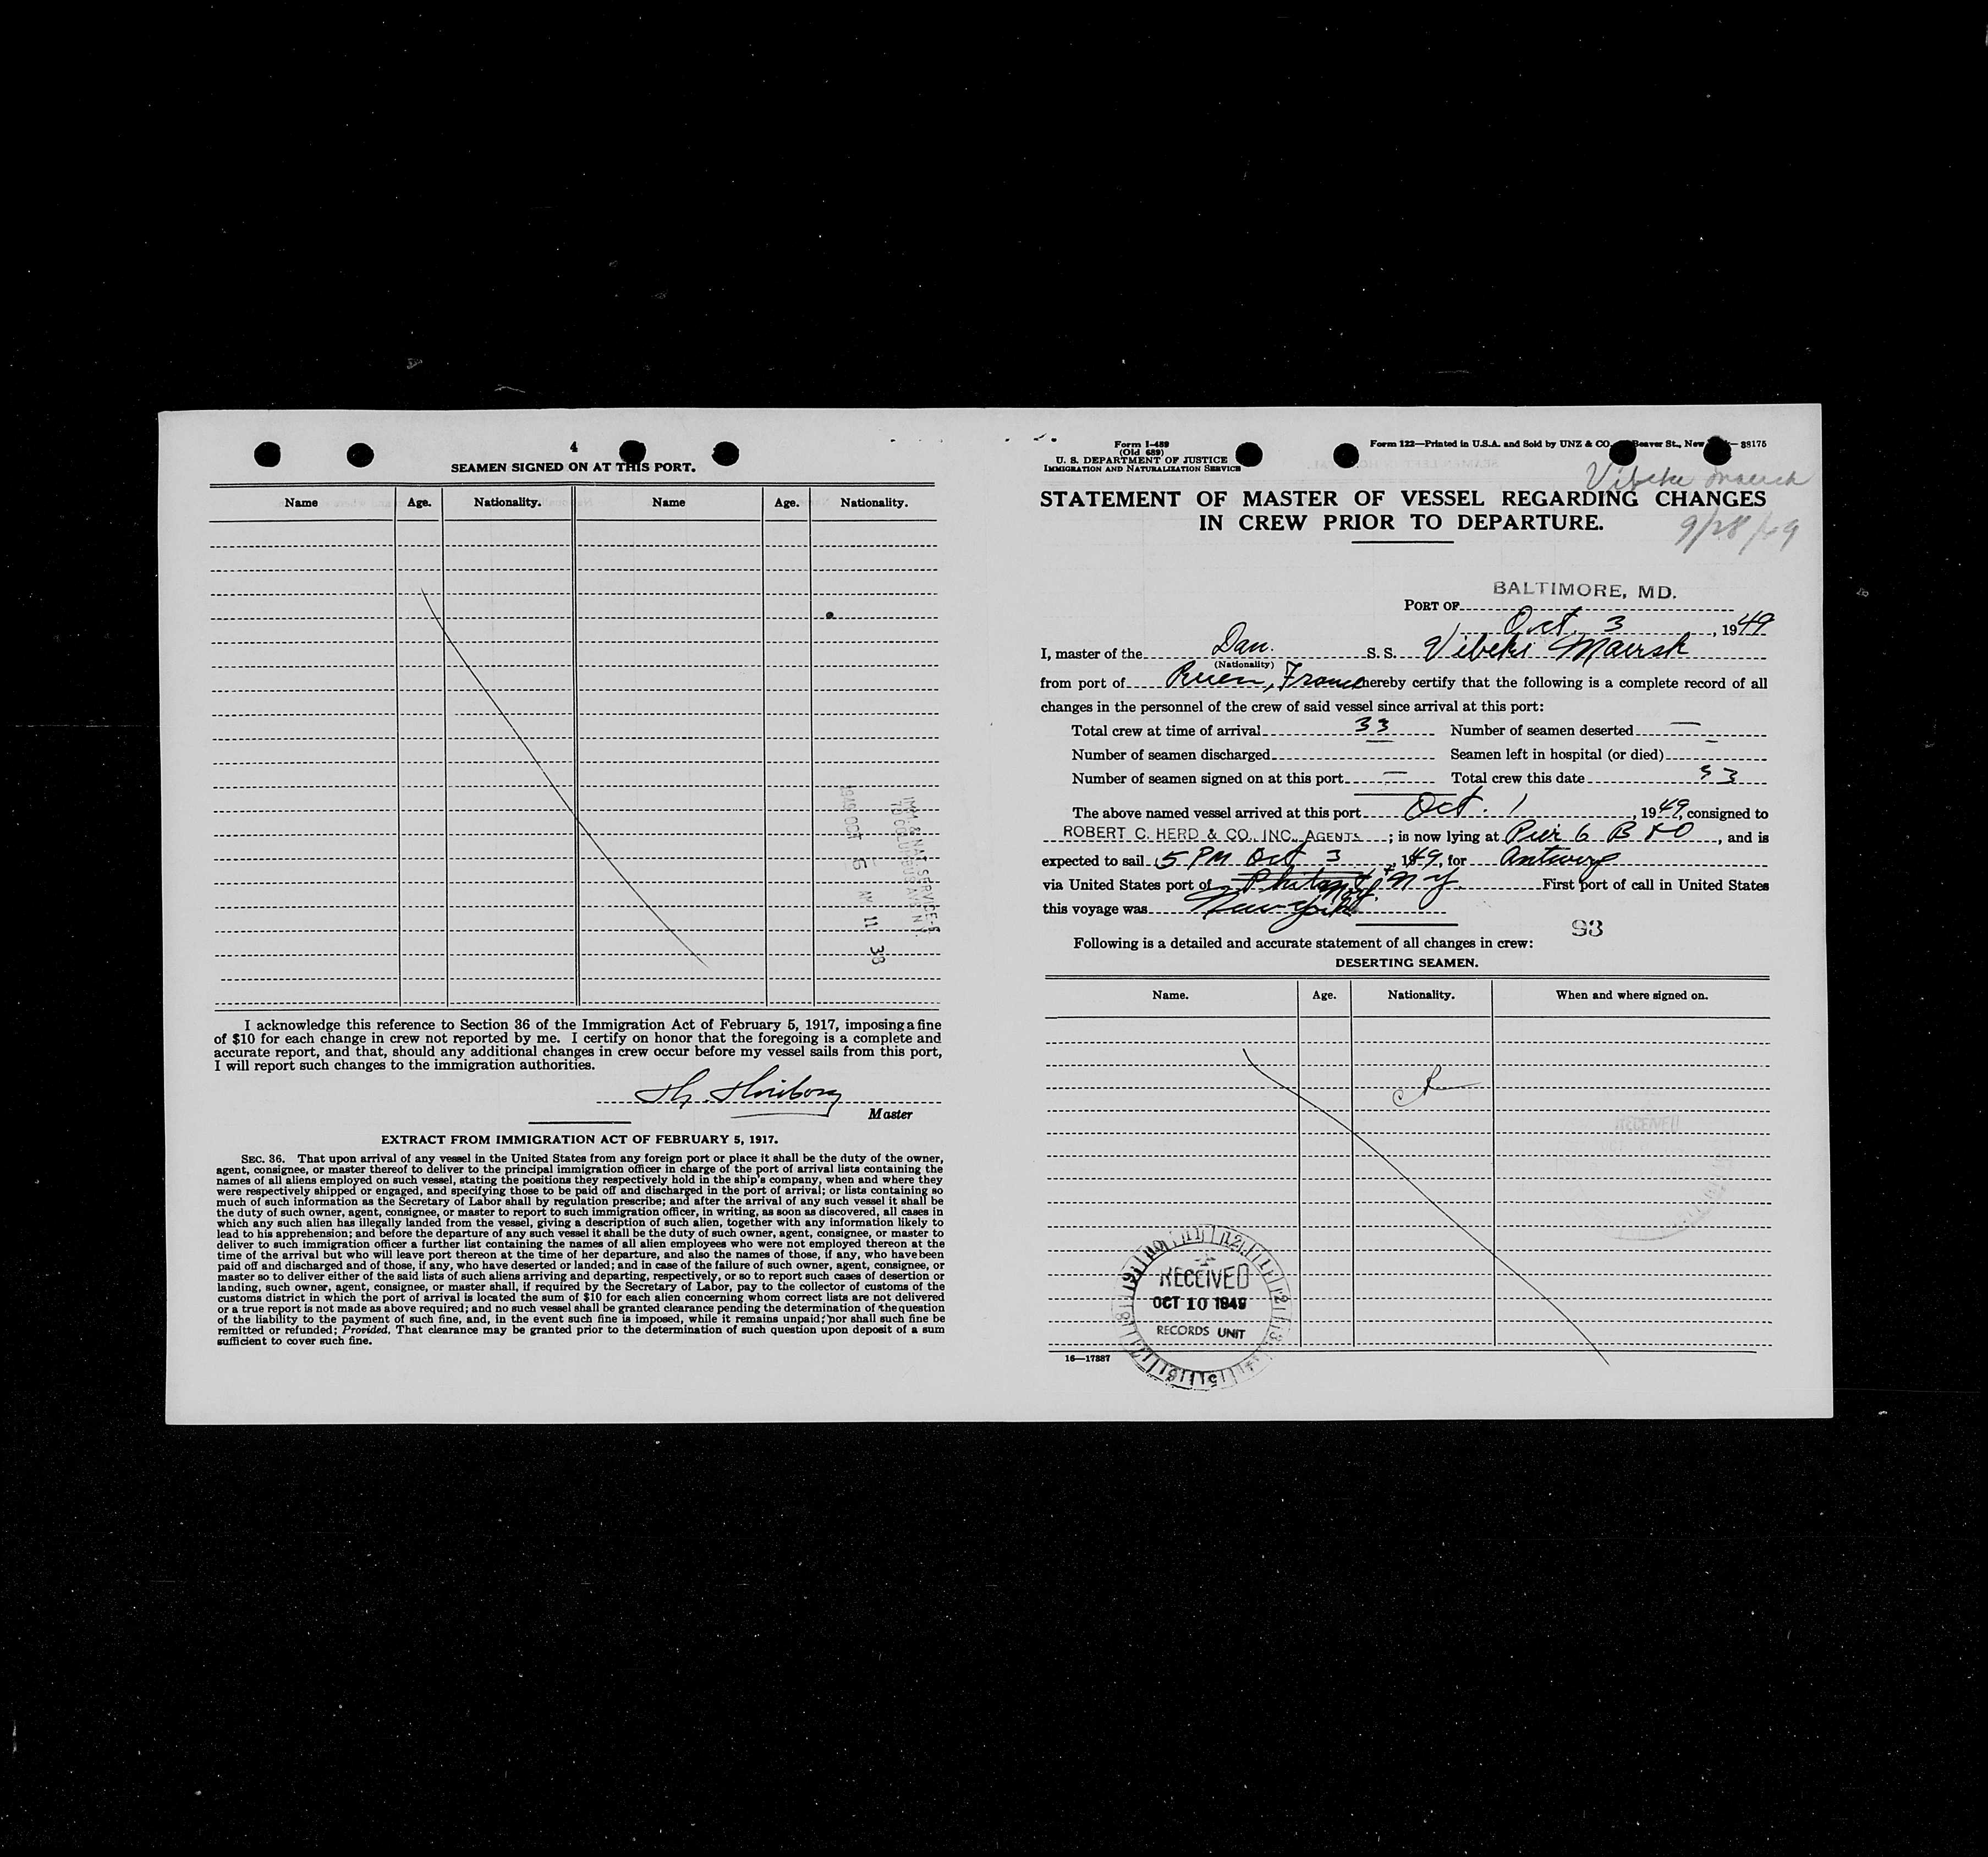 4
SEAMEN SIGNED ON AT THIS PORT.
Name Age. Nationality. Name Age. Nationality.
IMM. & NAT. SERVICE
70 COLUMBUS AV. N.Y.
1949 OCT 5 AM 11 38
I acknowledge this reference to Section 36 of the Immigration Act of February 5, 1917, imposing a fine
of $10 for each change in crew not reported by me. I certify on honor that the foregoing is a complete and
accurate report, and that, should any additional changes in crew occur before my vessel sails from this port,
I will report such changes to the immigration authorities.
Master
EXTRACT FROM IMMIGRATION ACT OF FEBRUARY 5, 1917.
SEC. 36. That upon arrival of any vessel in the United States from any foreign port or place it shall be the duty of the owner,
agent, consignee, or master thereof to deliver to the principal immigration officer in charge of the port of arrival lists containing the
names of all aliens employed on such vessel, stating the positions they respectively hold in the ship's company, when and where they
were respectively shipped or engaged, and specifying those to be paid off and discharged in the port of arrival; or lists containing so
much of such information as the Secretary of Labor shall by regulation prescribe; and after the arrival of any such vessel it shall be
the duty of such owner, agent, consignee, or master to report to such immigration officer, in writing, as soon as discovered, all cases in
which any such alien has illegally landed from the vessel, giving a description of such alien, together with any information likely to
lead to his apprehension; and before the departure of any such vessel it shall be the duty of such owner, agent, consignee, or master to
deliver to such immigration officer a further list containing the names of all alien employees who were not employed thereon at the
time of the arrival but who will leave port thereon at the time of her departure, and also the names of those, if any, who have been
paid off and discharged and of those, if any, who have deserted or landed; and in case of the failure of such owner, agent, consignee, or
master so to deliver either of the said lists of such aliens arriving and departing, respectively, or so to report such cases of desertion or
landing, such owner, agent, consignee, or master shall, if required by the Secretary of Labor, pay to the collector of customs of the
customs district in which the port of arrival is located the sum of $10 for each alien concerning whom correct lists are not delivered
or a true report is not made as above required; and no such vessel shall be granted clearance pending the determination of the question
of the liability to the payment of such fine, and, in the event such fine is imposed, while it remains unpaid; nor shall such fine be
remitted or refunded; Provided, That clearance may be granted prior to the determination of such question upon deposit of a sum
sufficient to cover such fine.
Form I-489
(Old 689)
U. S. DEPARTMENT OF JUSTICE
IMMIGRATION AND NATURALIZATION SERVICE
Form 122—Printed in U.S.A. and Sold by UNZ & CO. Beaver St., New — 88175
Vibeke Maersk
9/28/49
STATEMENT OF MASTER OF VESSEL REGARDING CHANGES
IN CREW PRIOR TO DEPARTURE.
BALTIMORE, MD.
PORT OF
Oct. 3, 1949
I, master of the Dan. S. S. Vibeke Maersk
(Nationality)
from port of Ruen, France hereby certify that the following is a complete record of all
changes in the personnel of the crew of said vessel since arrival at this port:
Total crew at time of arrival 33 Number of seamen deserted —
Number of seamen discharged — Seamen left in hospital (or died) —
Number of seamen signed on at this port — Total crew this date 33
The above named vessel arrived at this port Oct. 1, 1949, consigned to
ROBERT C. HERD & CO., INC., AGENTS; is now lying at Pier 6 B & O, and is
expected to sail 5 PM Oct 3, 1949, for Antwerp
via United States port of Phila + N Y. First port of call in United States
this voyage was New York
93
Following is a detailed and accurate statement of all changes in crew:
DESERTING SEAMEN.
Name. Age. Nationality. When and where signed on.
RECEIVED
RECEIVED
OCT 10 1949
RECORDS UNIT
16—17887